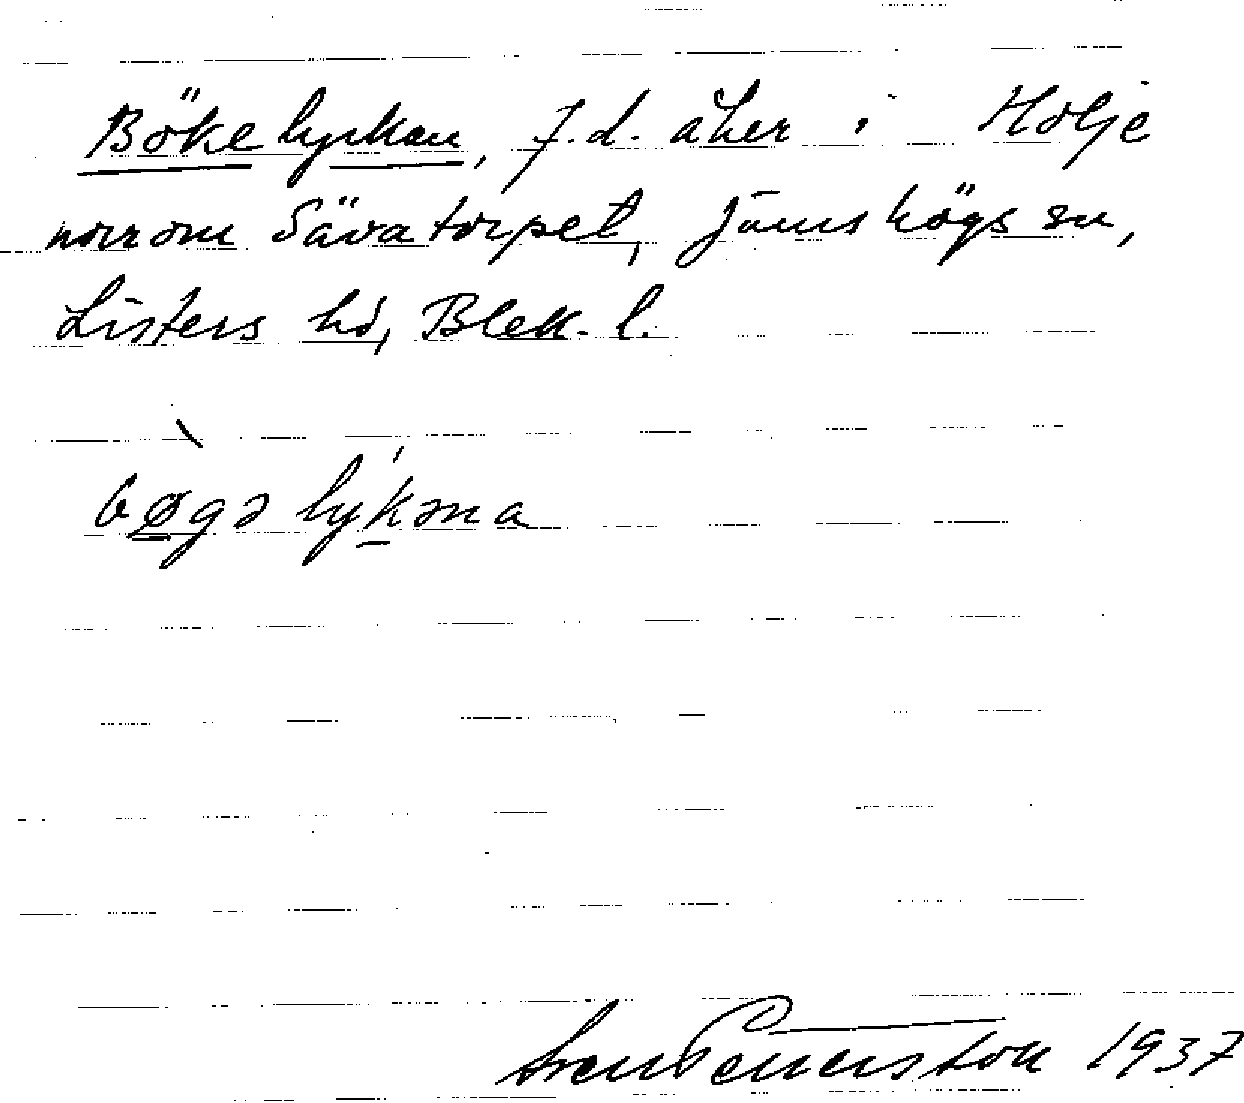 Bökelyckan, f.d. åker i Holje
norrom Sävatorpet, Jämshögs sn,
Listers hd, Blek. l.
bøgə lykəna
Sven Benson 1937